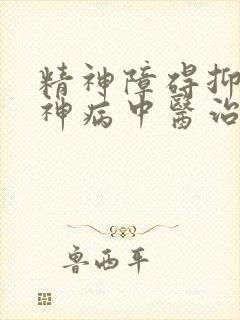 精神障碍抑
神病中醫治
鲁西平